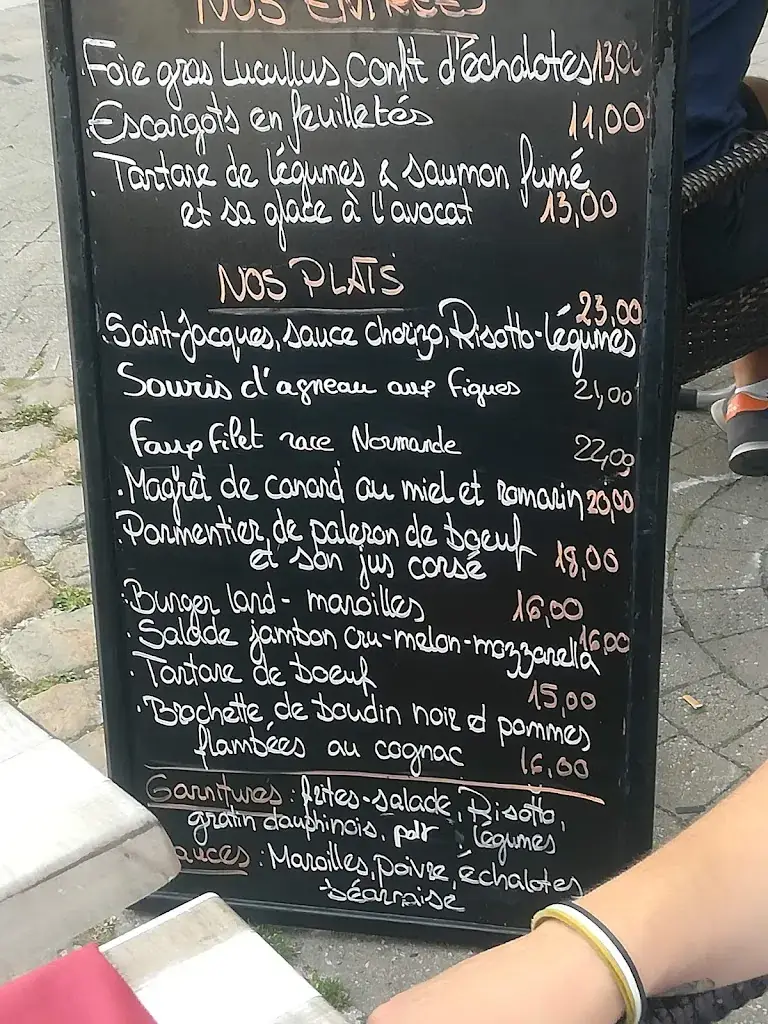 NOS ENTRÉES
Foie gras Lucullus, Confit d'échalotes 13,00
Escargots en feuilletés 11,00
Tartare de légumes & saumon fumé
et sa glace à l'avocat 13,00
NOS PLATS
23,00
Saint-Jacques, sauce chorizo, Risotto-légumes
Souris d'agneau aux figues 21,00
Faux filet race Normande 22,00
Magret de canard au miel et romarin 20,00
Parmentier de paleron de boeuf
et son jus corsé 18,00
Burger lard - maroilles 16,00
Salade jambon cru-melon-mozzarella 16,00
Tartare de boeuf 15,00
Brochette de boudin noir et pommes
flambées au cognac 16,00
Garnitures : frites-salade, Risotto,
gratin dauphinois, légumes
auces : Maroilles, poivre, échalotes
béarnaise